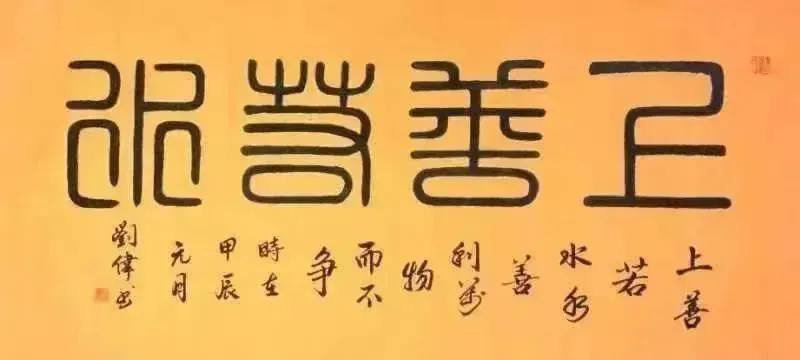 上善若水
上善
若
水水
善
利萬
物
而不
争
時在
甲辰
元月
劉偉书